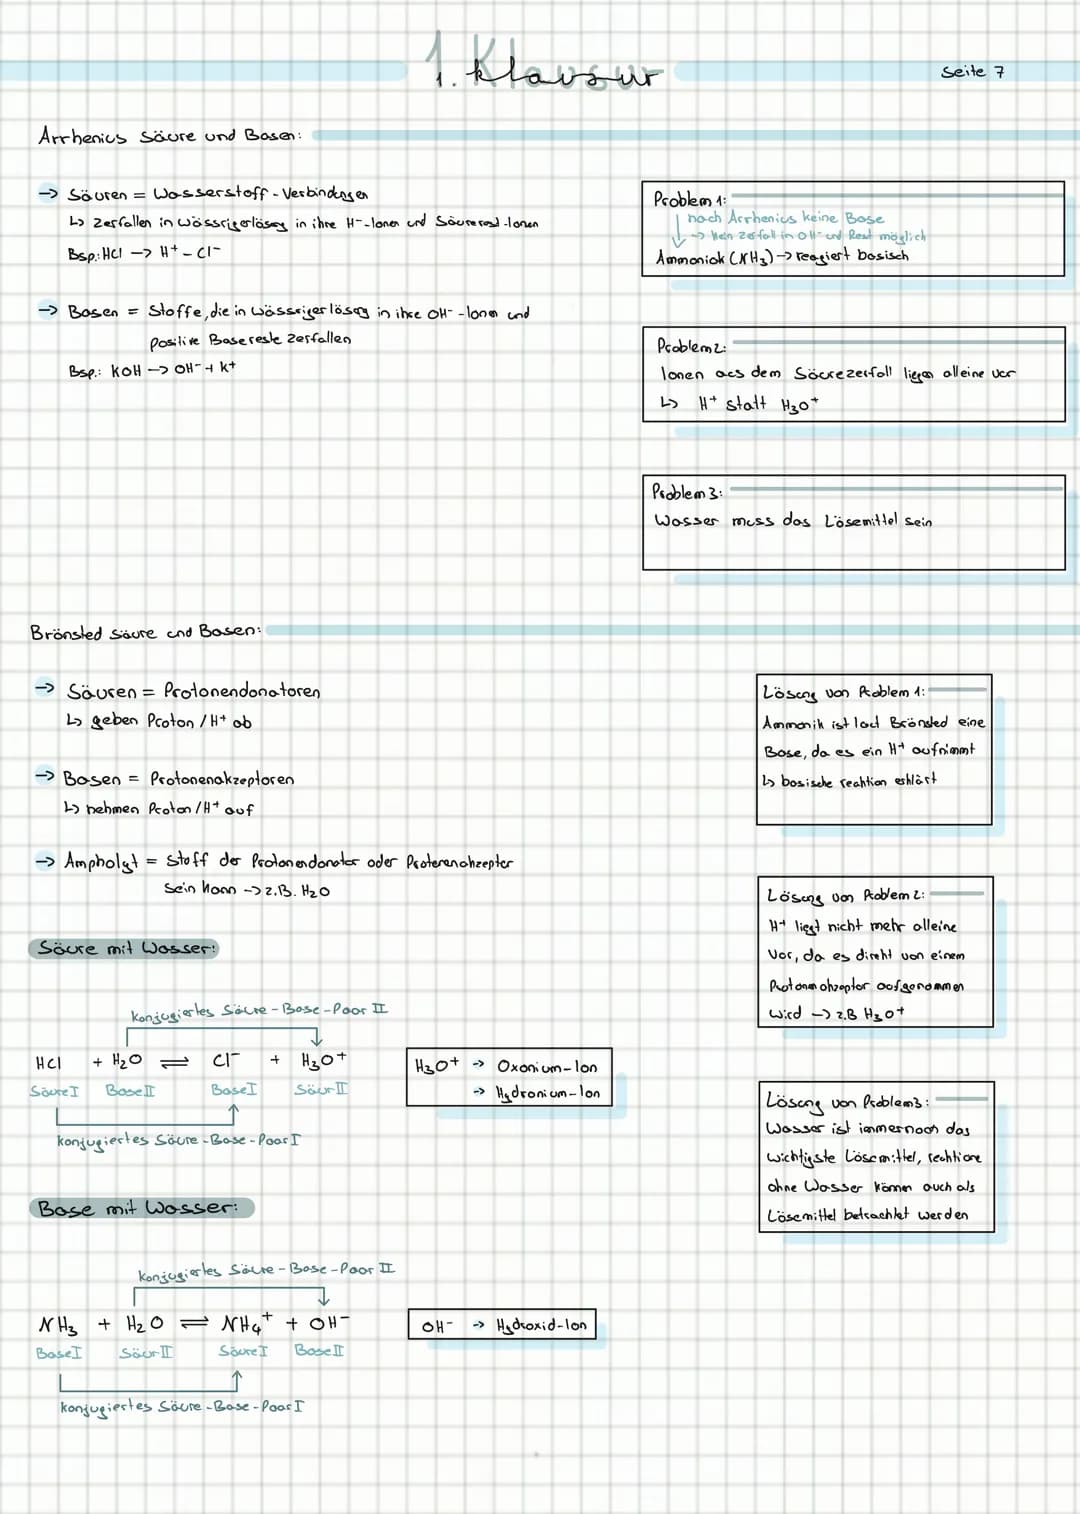 1. Klausur
Seite 7
Arrhenius Säure und Basen:
→ Säuren = Wasserstoff-Verbindungen
↳ Zerfallen in wässrigerlösung in ihre H⁻-Ionen und Säurerest-Ionen
Bsp.: HCl → H⁺ - Cl⁻
→ Basen = Stoffe, die in wässriger lösung in ihre OH⁻-Ionen und
positive Basereste zerfallen
Bsp.: KOH → OH⁻ + K⁺
Problem 1:
nach Arrhenius keine Base
→ kein zerfall in OH⁻ und Rest möglich
Ammoniak (NH₃) → reagiert basisch
Problem 2:
Ionen aus dem Säurezerfall liegen alleine vor
↳ H⁺ statt H₃O⁺
Problem 3:
Wasser muss das Lösemittel sein
Brönsted Säure und Basen:
→ Säuren = Protonendonatoren
↳ geben Proton / H⁺ ab
→ Basen = Protonenakzeptoren
↳ nehmen Proton / H⁺ auf
→ Ampholyt = Stoff der Protonendonator oder Protenenakzepter
sein kann → z.B. H₂O
Lösung von Problem 1:
Ammonik ist laut Brönsted eine
Base, da es ein H⁺ aufnimmt
↳ basische reaktion erklärt
Lösung von Problem 2:
H⁺ liegt nicht mehr alleine
vor, da es direkt von einem
Protonenakzeptor aufgenommen
wird → z.B H₃O⁺
Lösung von Problem 3:
Wasser ist immernoch das
wichtigste Lösemittel, reaktione
ohne Wasser können auch als
Lösemittel betrachtet werden
Säure mit Wasser:
konjugiertes Säure-Base-Paar II
HCl + H₂O ⇌ Cl⁻ + H₃O⁺
Säure I Base II Base I Säur II
konjugiertes Säure-Base-Paar I
H₃O⁺ → Oxonium-Ion
→ Hydronium-Ion
Base mit Wasser:
konjugiertes Säure-Base-Paar II
NH₃ + H₂O ⇌ NH₄⁺ + OH⁻
Base I Säur II Säure I Base II
konjugiertes Säure-Base-Paar I
OH⁻ → Hydroxid-Ion